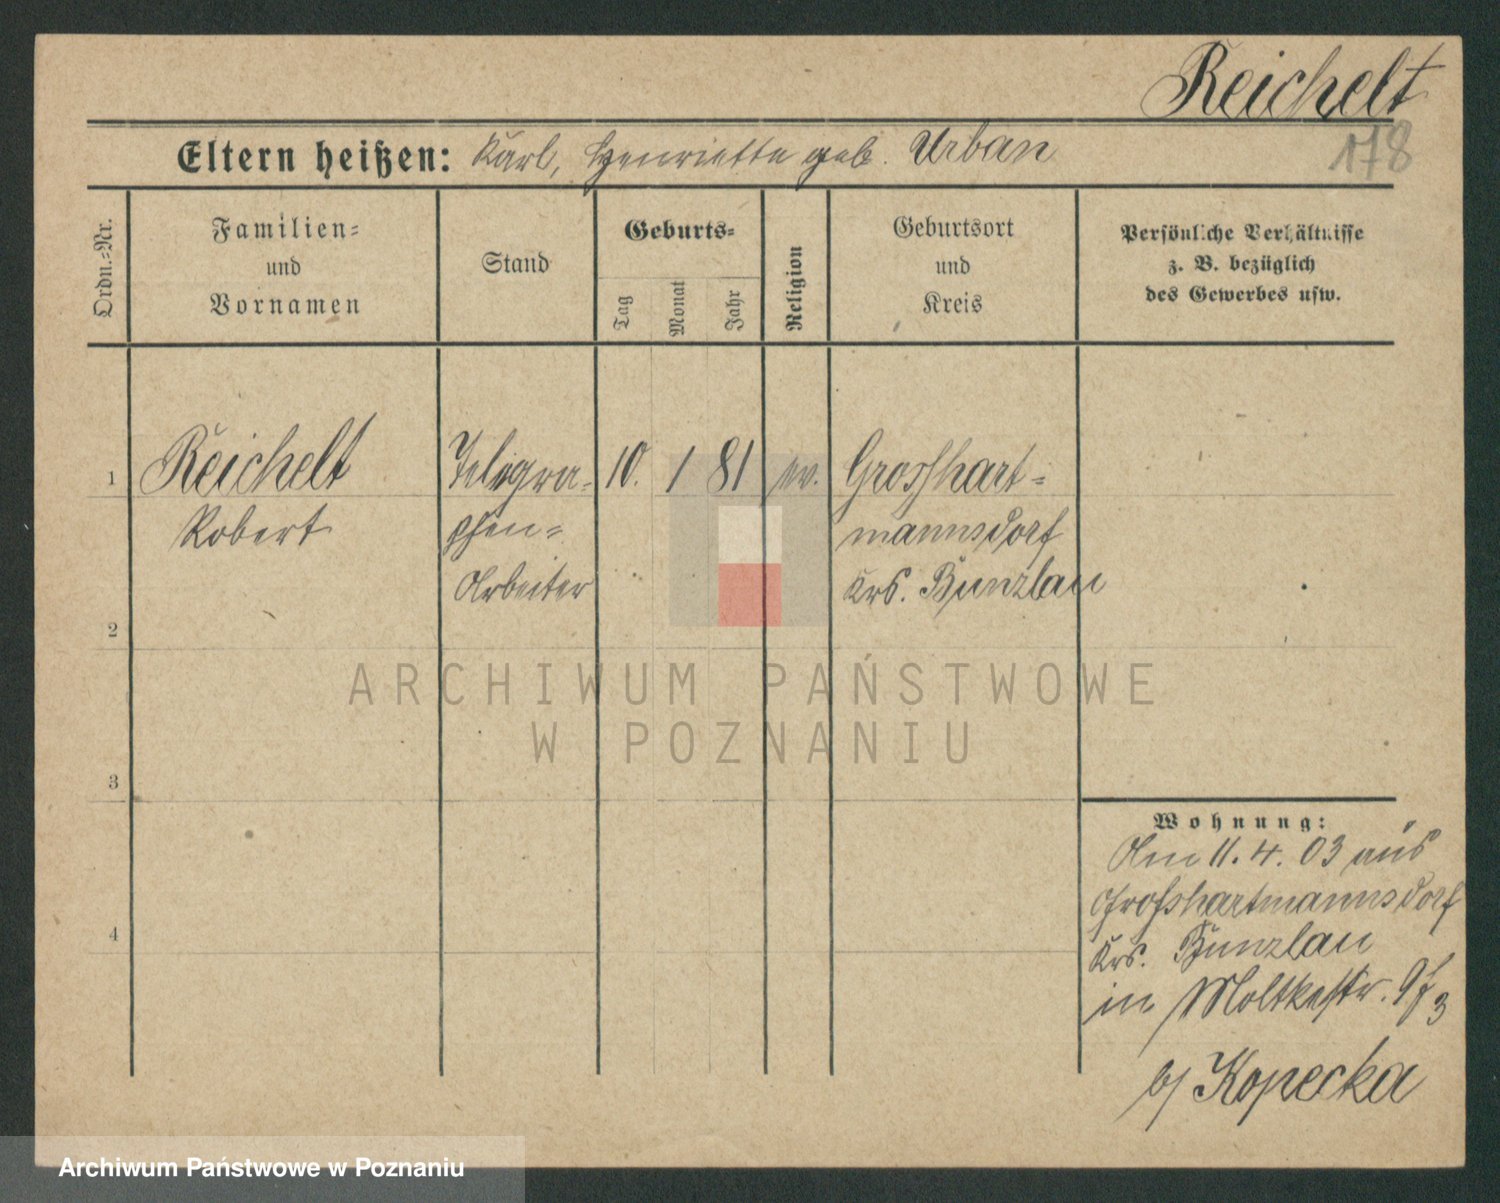 Reichelt
178
Eltern heißen: Karl, Henriette geb. Urban
Ordn.-Nr.
Familien-
und
Vornamen
Stand
Geburts-
Tag
Monat
Jahr
Religion
Geburtsort
und
Kreis
Persönliche Verhältnisse
z. B. bezüglich
des Gewerbes usw.
1 Reichelt Telegra- 10. 1 81 ev. Grosshart-
Robert phen- mannsdorf
Arbeiter Krs. Bunzlau
2
3
4
Wohnung:
Am 11.4.03 aus
Grosshartmannsdorf
Krs. Bunzlau
in Moltkestr.
b/ Kopecka
ARCHIWUM PAŃSTWOWE
W POZNANIU
Archiwum Państwowe w Poznaniu